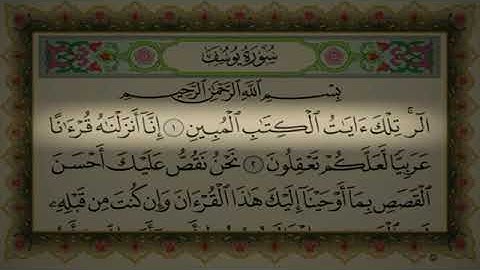 سُورَةُ يُوسُفَ
بِسْمِ ٱللَّهِ ٱلرَّحْمَٰنِ ٱلرَّحِيمِ
الٓرۚ تِلْكَ ءَايَٰتُ ٱلْكِتَٰبِ ٱلْمُبِينِ ١ إِنَّآ أَنزَلْنَٰهُ قُرْءَٰنًا
عَرَبِيًّا لَّعَلَّكُمْ تَعْقِلُونَ ٢ نَحْنُ نَقُصُّ عَلَيْكَ أَحْسَنَ
ٱلْقَصَصِ بِمَآ أَوْحَيْنَآ إِلَيْكَ هَٰذَا ٱلْقُرْءَانَ وَإِن كُنتَ مِن قَبْلِهِۦ